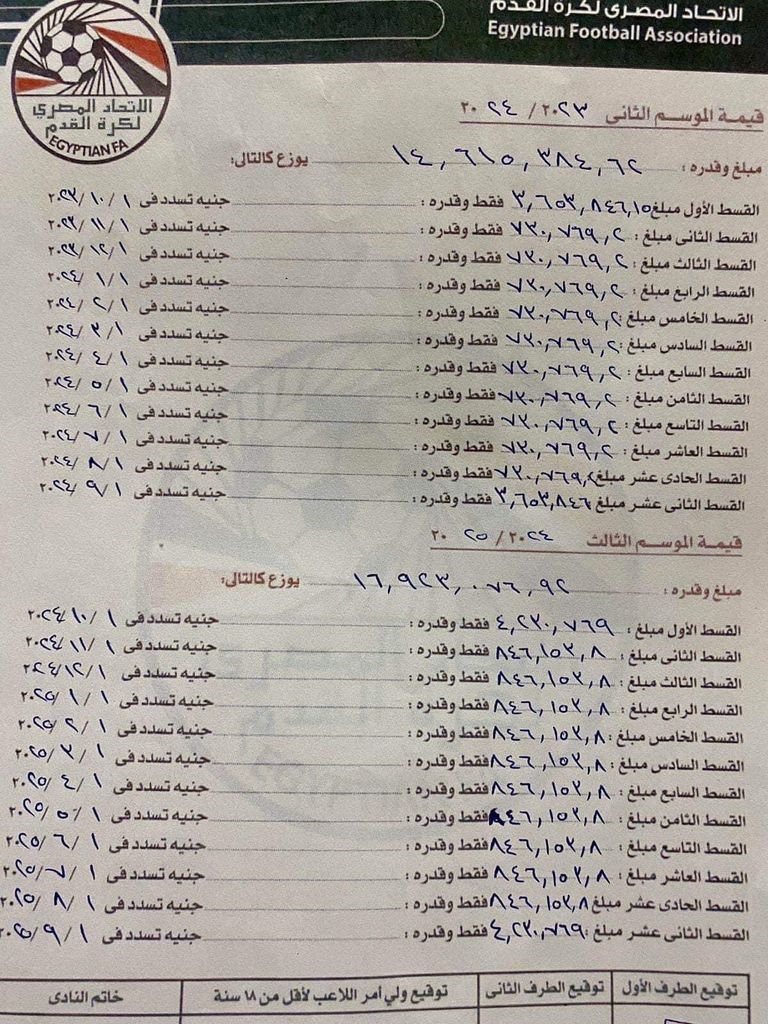 الاتحاد المصرى لكرة القدم
Egyptian Football Association
الاتحاد المصرى
لكرة القدم
EGYPTIAN FA
قيمة الموسم الثانى ٢٠٢٣ / ٢٠٢٤
مبلغ وقدره : ١٤,٦١٥,٣٨٤,٦٢ يوزع كالتالى:
القسط الأول مبلغ ٣,٦٥٣,٨٤٦,١٥ فقط وقدره : جنيه تسدد فى ١ / ١٠ / ٢٠٢٣
القسط الثانى مبلغ : ٧٣٠,٧٦٩,٢ فقط وقدره : جنيه تسدد فى ١ / ١١ / ٢٠٢٣
القسط الثالث مبلغ : ٧٣٠,٧٦٩,٢ فقط وقدره : جنيه تسدد فى ١ / ١٢ / ٢٠٢٣
القسط الرابع مبلغ : ٧٣٠,٧٦٩,٢ فقط وقدره : جنيه تسدد فى ١ / ١ / ٢٠٢٤
القسط الخامس مبلغ : ٧٣٠,٧٦٩,٢ فقط وقدره : جنيه تسدد فى ١ / ٢ / ٢٠٢٤
القسط السادس مبلغ : ٧٣٠,٧٦٩,٢ فقط وقدره : جنيه تسدد فى ١ / ٣ / ٢٠٢٤
القسط السابع مبلغ : ٧٣٠,٧٦٩,٢ فقط وقدره : جنيه تسدد فى ١ / ٤ / ٢٠٢٤
القسط الثامن مبلغ : ٧٣٠,٧٦٩,٢ فقط وقدره : جنيه تسدد فى ١ / ٥ / ٢٠٢٤
القسط التاسع مبلغ : ٧٣٠,٧٦٩,٢ فقط وقدره : جنيه تسدد فى ١ / ٦ / ٢٠٢٤
القسط العاشر مبلغ : ٧٣٠,٧٦٩,٢ فقط وقدره : جنيه تسدد فى ١ / ٧ / ٢٠٢٤
القسط الحادى عشر مبلغ : ٧٣٠,٧٦٩,٢ فقط وقدره : جنيه تسدد فى ١ / ٨ / ٢٠٢٤
القسط الثانى عشر مبلغ : ٣,٦٥٣,٨٤٦ فقط وقدره : جنيه تسدد فى ١ / ٩ / ٢٠٢٤
قيمة الموسم الثالث ٢٠٢٤ / ٢٠٢٥
مبلغ وقدره : ١٦,٩٢٣,٠٧٦,٩٢ يوزع كالتالى:
القسط الأول مبلغ : ٤,٢٣٠,٧٦٩ فقط وقدره : جنيه تسدد فى ١ / ١٠ / ٢٠٢٤
القسط الثانى مبلغ : ٨٤٦,١٥٣,٨ فقط وقدره : جنيه تسدد فى ١ / ١١ / ٢٠٢٤
القسط الثالث مبلغ : ٨٤٦,١٥٣,٨ فقط وقدره : جنيه تسدد فى ١ / ١٢ / ٢٠٢٤
القسط الرابع مبلغ : ٨٤٦,١٥٣,٨ فقط وقدره : جنيه تسدد فى ١ / ١ / ٢٠٢٥
القسط الخامس مبلغ : ٨٤٦,١٥٣,٨ فقط وقدره : جنيه تسدد فى ١ / ٢ / ٢٠٢٥
القسط السادس مبلغ : ٨٤٦,١٥٣,٨ فقط وقدره : جنيه تسدد فى ١ / ٣ / ٢٠٢٥
القسط السابع مبلغ : ٨٤٦,١٥٣,٨ فقط وقدره : جنيه تسدد فى ١ / ٤ / ٢٠٢٥
القسط الثامن مبلغ : ٨٤٦,١٥٣,٨ فقط وقدره : جنيه تسدد فى ١ / ٥ / ٢٠٢٥
القسط التاسع مبلغ : ٨٤٦,١٥٣,٨ فقط وقدره : جنيه تسدد فى ١ / ٦ / ٢٠٢٥
القسط العاشر مبلغ : ٨٤٦,١٥٣,٨ فقط وقدره : جنيه تسدد فى ١ / ٧ / ٢٠٢٥
القسط الحادى عشر مبلغ ٨٤٦,١٥٣,٨ فقط وقدره : جنيه تسدد فى ١ / ٨ / ٢٠٢٥
القسط الثانى عشر مبلغ : ٤,٢٣٠,٧٦٩ فقط وقدره : جنيه تسدد فى ١ / ٩ / ٢٠٢٥
توقيع الطرف الأول توقيع الطرف الثانى توقيع ولي أمر اللاعب لأقل من ١٨ سنة خاتم النادى